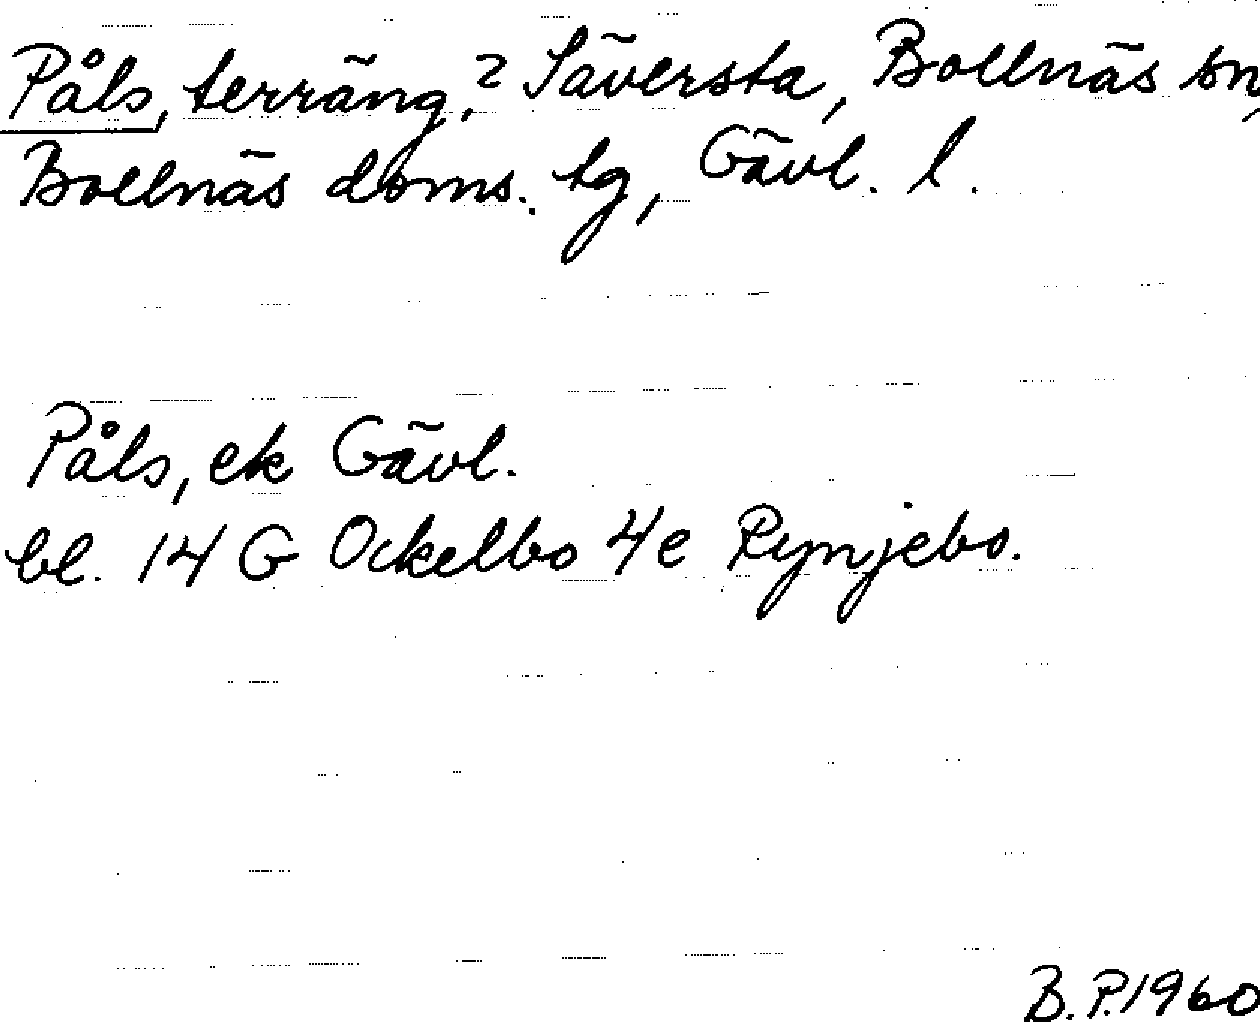 Påls, terräng,? Säversta, Bollnäs sn,
Bollnäs doms. tg, Gävl. l.
Påls, ek Gävl.
bl. 14 G Ockelbo 4e Rynjebo.
B.P.1960